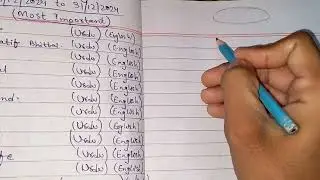 /12/2024 to 31/12/2024
(Most Important)
(Urdu) (English)
atif Bhittal (Urdu) (English)
(Urdu) (English)
al (Urdu) (English)
(Urdu) (English)
and: (Urdu) (English)
(Urdu) (English)
(Urdu) (English)
f e (Urdu) (English)
(Urdu) (English)